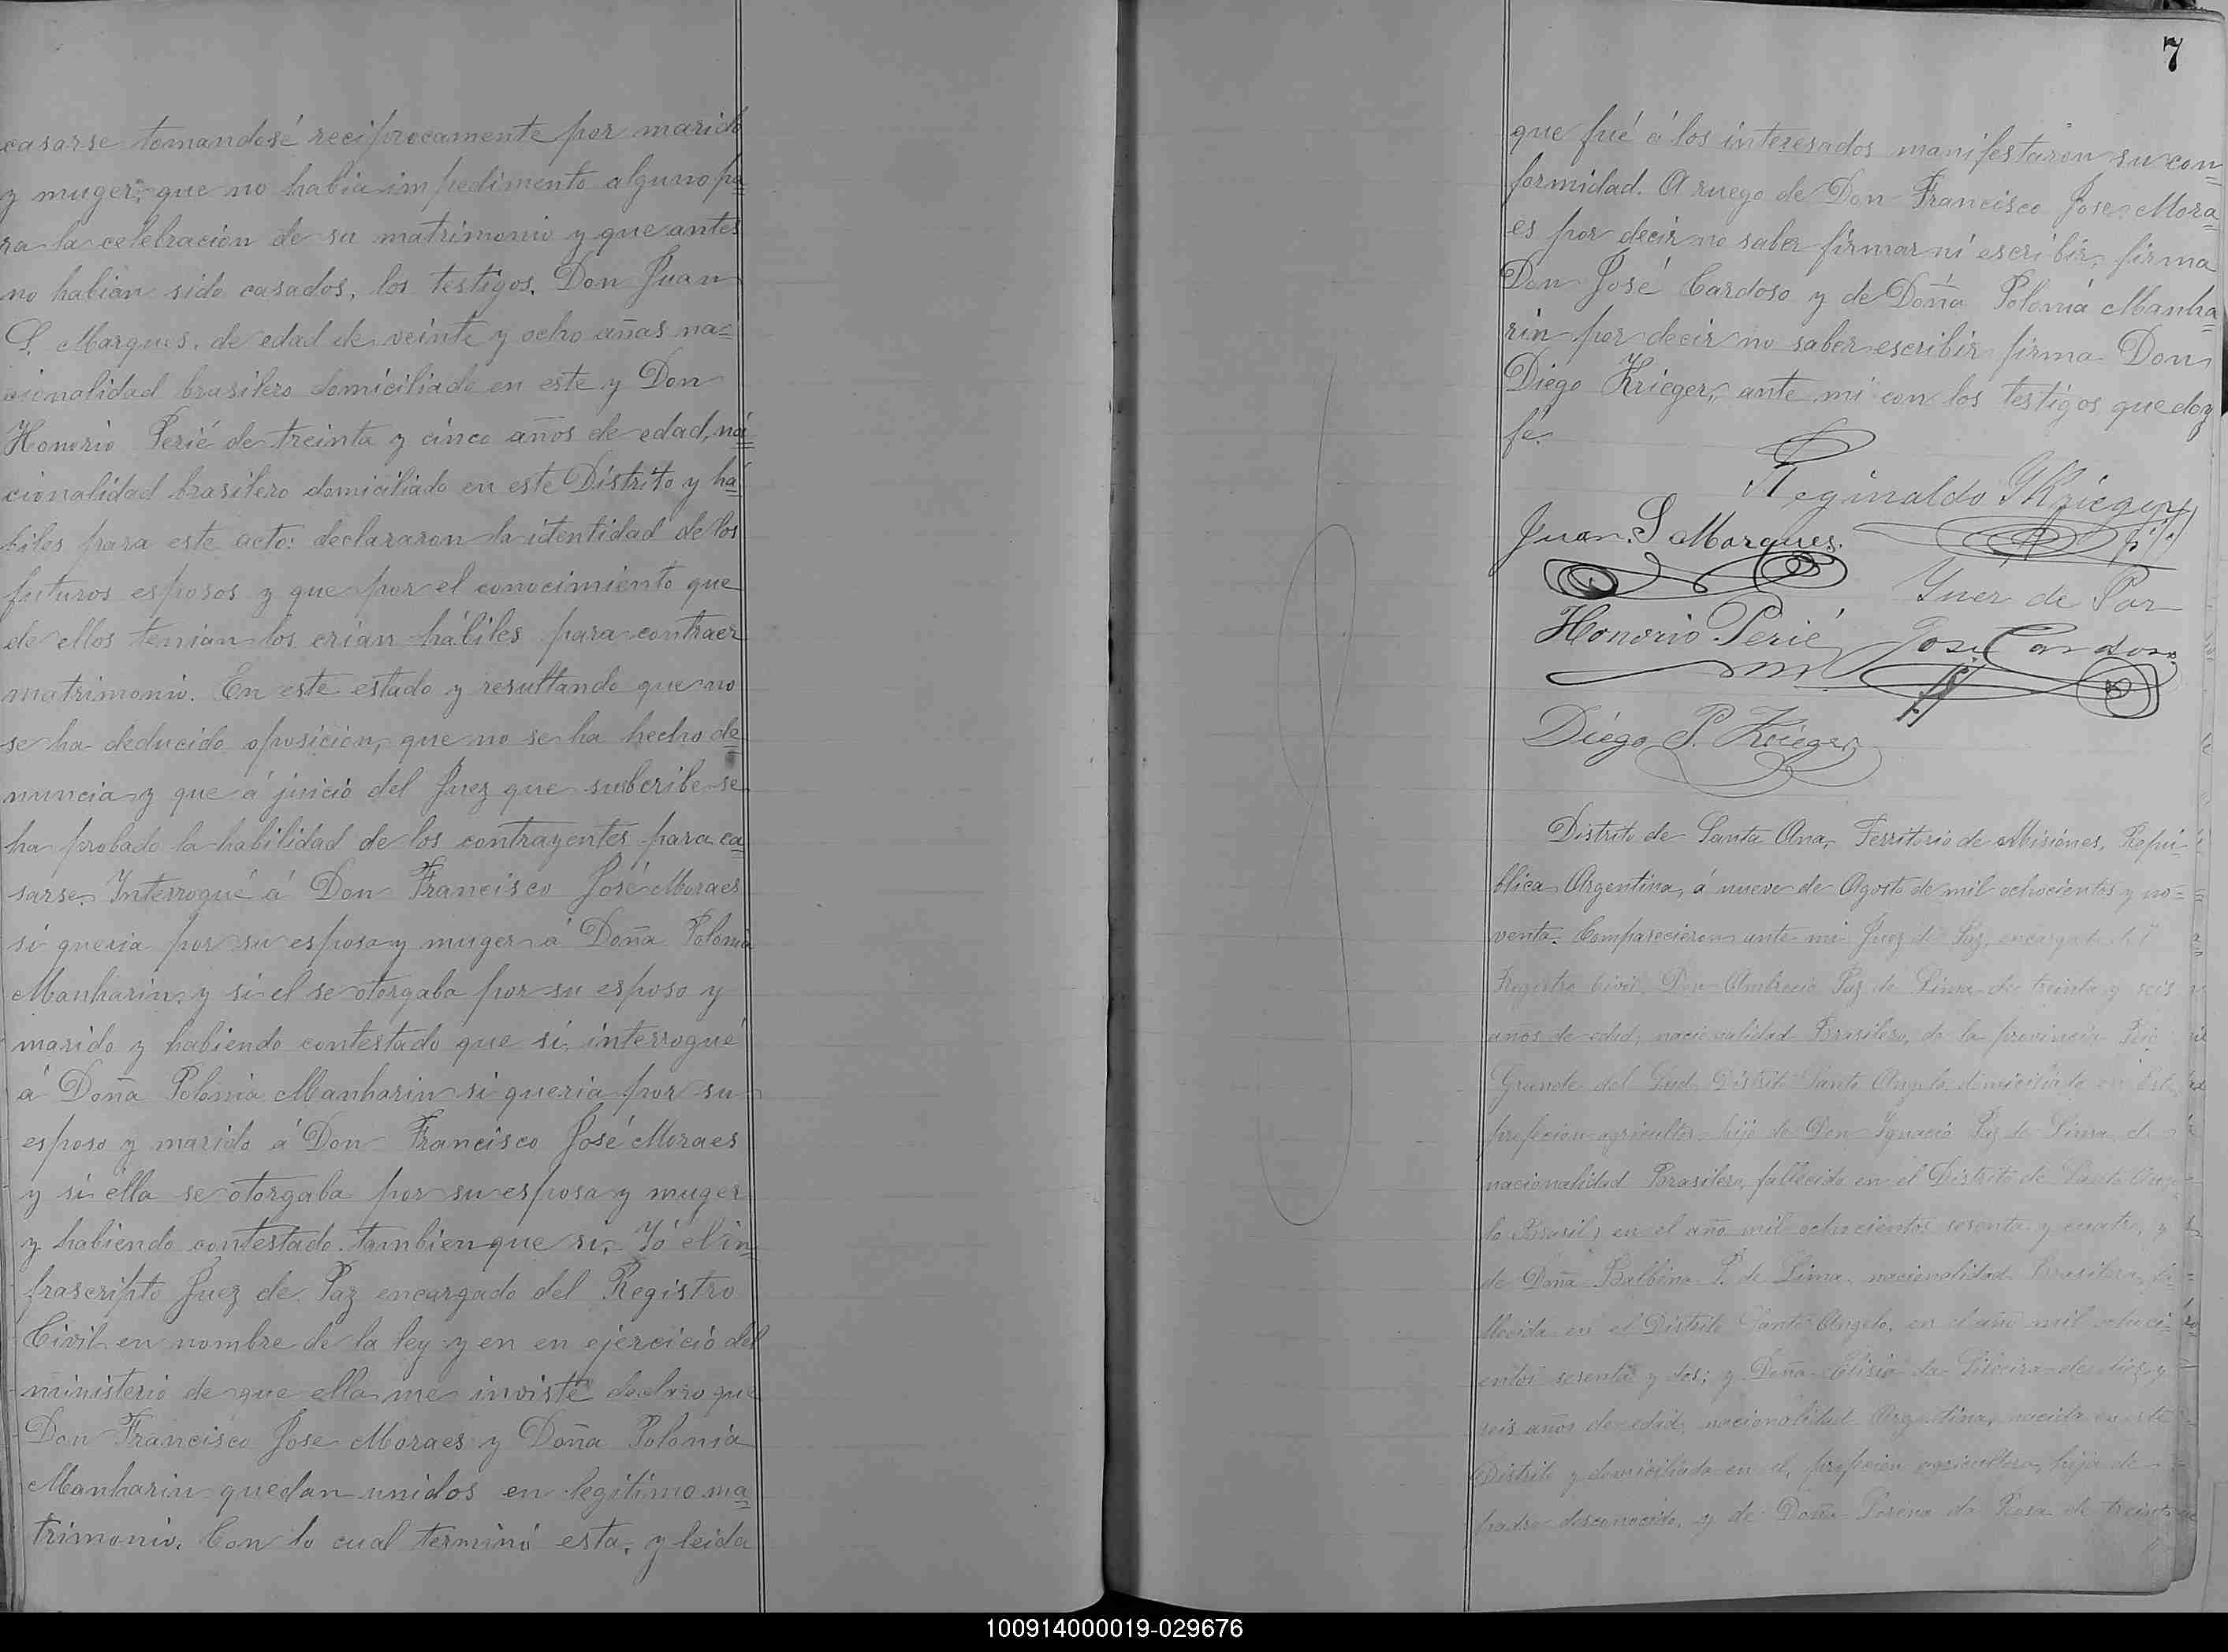 casarse tomandosé reciprocamente por marido
y muger, que no habia impedimento alguno pa=
ra la celebracion de su matrimonio y que antes
no habian sido casados, los testigos. Don Juan
S. Marques, de edad de veinte y ocho años na=
cionalidad brasilero domiciliado en este y Don
Honorio Perié de treinta y cinco años de edad, na=
cionalidad brasilero domiciliado en este Distrito y há=
biles para este acto: declararon la identidad de los
futuros esposos y que por el conocimiento que
de ellos tenian los crian hábiles para contraer
matrimonio. En este estado y resultando que no
se ha deducido oposicion, que no se ha hecho de=
nuncia y que á juicio del Juez que subcribe se
ha probado la habilidad de los contrayentes para ca=
sarse. Interrogué á Don Francisco José Moraes
si queria por su esposa y muger á Doña Polonia
Manharin, y si el se otorgaba por su esposo y
marido y habiendo contestado que si, interrogué
á Doña Polonia Manharin si queria por su
esposo y marido á Don Francisco José Moraes
y si ella se otorgaba por su esposa y muger
y habiendo contestado tambien que si. Yó el in=
frascripto Juez de Paz encargado del Registro
Civil en nombre de la ley y en en ejercicio del
ministerio de que ella me inviste declaro que
Don Francisco Jose Moraes y Doña Polonia
Manharin quedan unidos en legitimo ma=
trimonio. Con lo cual terminó esta, y leida
7
que fué á los interesados manifestaron su con=
formidad. A ruego de Don Francisco Jose Mora=
es por decir no saber firmar ni escribir, firma
Don José Cardoso y de Doña Polonia Manha=
rin por decir no saber escribir firma Don
Diego Krieger, ante mi con los testigos que doy
fé.
Reginaldo Krieger
Juan. S Marques.
Juez de Paz
Honorio Perié
Jose Cardoso
Diego P. Krieger
Distrito de Santa Ana, Territorio de Misiónes, Repú=
blica Argentina, á nueve de Agosto de mil ochocientos y no=
venta. Comparecieron ante mi Juez de Paz, encargado del
Registro Civil. Don Ambrocio Paz de Lima de treinta y seis
años de edad, nacionalidad Brasilero, de la provincia Rio
Grande del Sud, Distrito Santo Angelo, domiciliado en
profecion agricultor hijo de Don Ignacio Paz de Lima, de
nacionalidad Brasilero, fallecido en el Distrito de Santo Ange=
lo Brasil, en el año mil ochocientos sesenta y cuatro, y
de Doña Balbina P. de Lima, nacionalidad Brasilera, fa=
llecida en el Distrito Santo Angelo, en el año mil ochoci=
entos sesenta y dos; y Doña da de diez y
seis años de edad, nacionalidad Argentina, nacida en este
Distrito y domiciliada en el, profecion agricultora, hija de
padre desconocido, y de Doña da Rosa de treinta
100914000019-029676